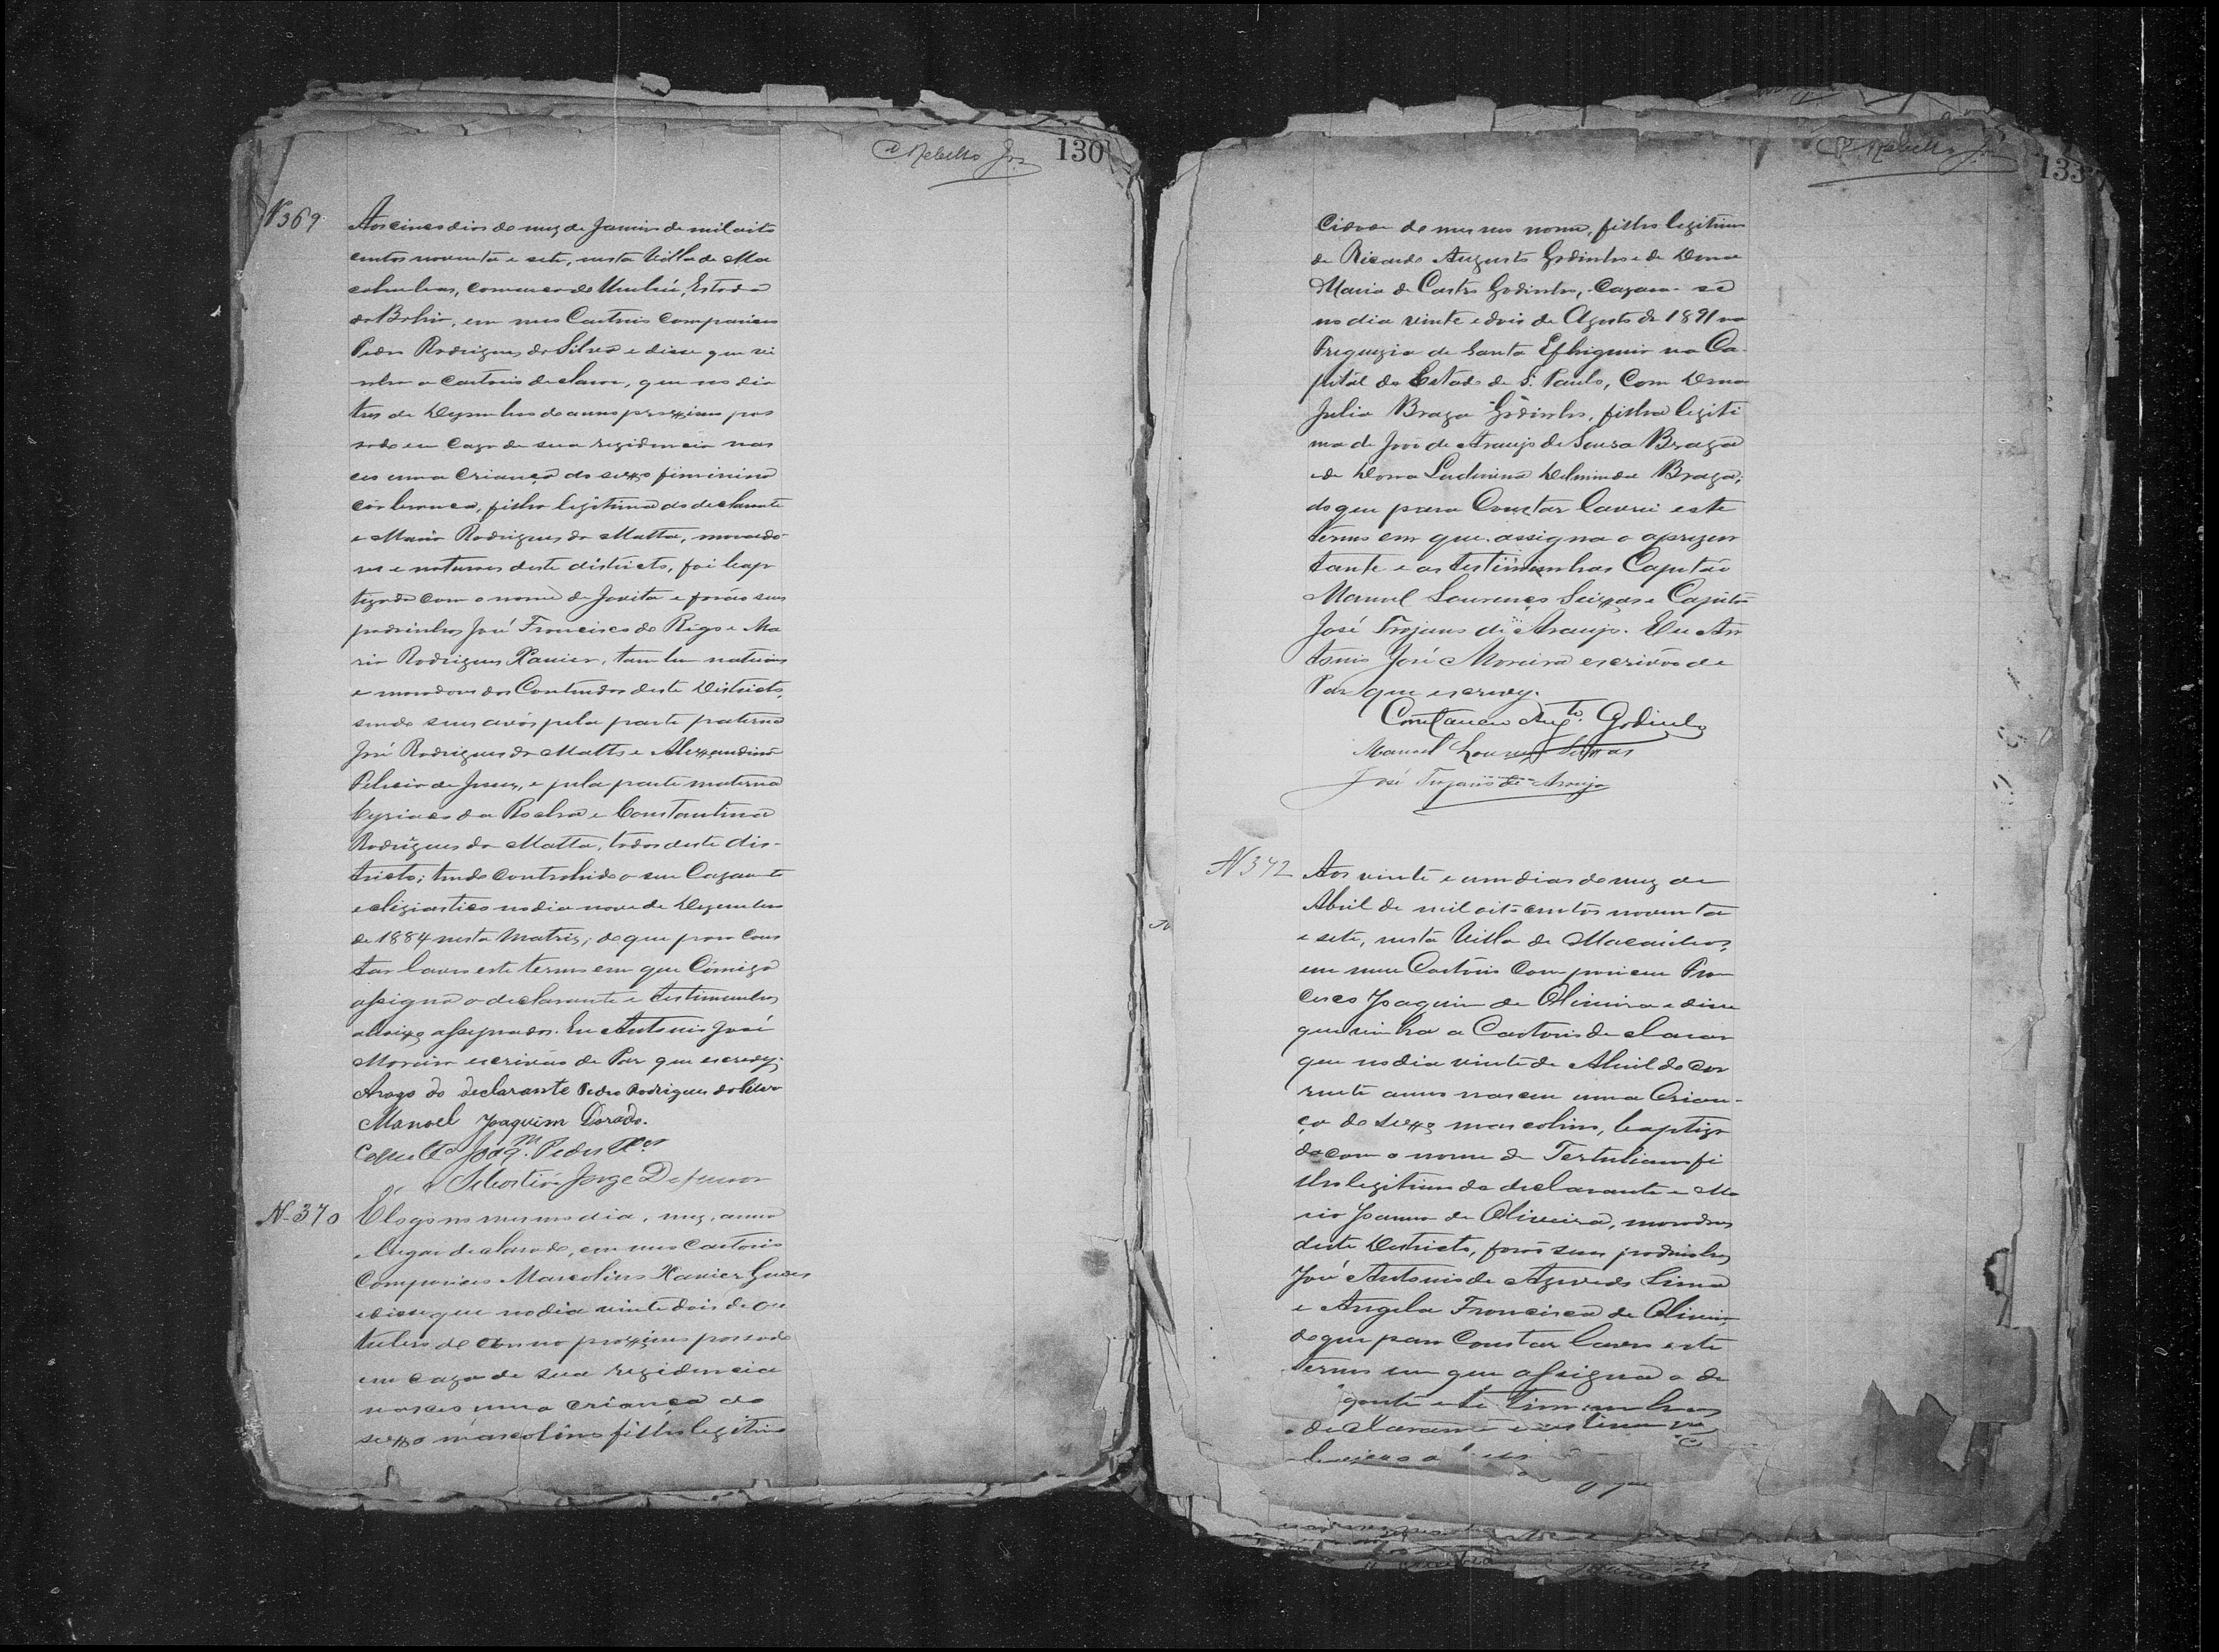 Rebello Jor. 130
N 369
Aos cinco dias do mez de Janeiro de mil oito
centos noventa e sete, nesta Villa de Ma
cahubas, comarca de Urubú, Estado
da Bahia, em meu Cartorio compareceu
Pedro Rodrigues da Silva e disse que vi
nha a cartorio declarar, que no dia
tres de Dezembro do anno proximo pas
sado em caza de sua rezidencia nas
ceu uma criança do sexo feminino
côr branca, filha legitima do declarante
e Maria Rodrigues da Matta, morado
res e naturaes deste districto, foi bap
tizada com o nome de Jovita e forão seus
padrinhos José Francisco do Rego e Ma
ria Rodrigues Xavier, tambem naturaes
e moradores dos Contendas deste Districto,
sendo seus avós pela parte paterna
José Rodrigues da Matta e Alexandrina
Felicia de Jesus, e pela parte materna
Cyriaco da Rocha e Constantina
Rodrigues da Matta, todos deste dis-
tricto; tendo contrahido o seu Cazamto
ecleziastico no dia nove de Dezembro
de 1884 nesta Matriz; do que para cons
tar lavro este termo em que comigo
assigna o declarante e testimunhas
abaixo assignados. Eu Antonio José
Moreira escrivão de Paz que escrevy.
Arogo do declarante Pedro Rodrigues da Silva
Manoel Joaquim Dorado.
Joaqm. Pedro
Sebastião Jorge
N. 370
E logo no mesmo dia, mez, anno
e lugar declarado, em meu Cartorio
Compareceu Marcolino Xavier
e disse que no dia vinte dois de Ou
tubro do anno proximo passado
em caza de sua rezidencia
nasceo uma criança do
sexo mascolino filho legitimo
Rebello Jor. 133
Cidade do mesmo nome, filho legitimo
de Ricardo Augusto Godinho e de Dona
Maria de Castro Godinho, Cazara-se
no dia vinte e dois de Agosto de 1891 na
Freguezia de Santa Ephigenia na Ca-
pital do Estado de S. Paulo, Com Dona
Julia Braga Godinho, filha legiti
ma de João de Araujo de Souza Braga
e de Dona Luduvina Delminda Braga;
do que para Constar lavrei este
termo em que assigna o aprezen
tante e as testimunhas Capitão
Manuel Lourenço Seixas e Capitão
José Trajano de Araujo. Eu An
tonio José Moreira escrivão de
Paz que escrevy.
Constancio Augto. Godinho
Manuel Lourenço Seixas
José Trajano de Araujo
N 372
Aos vinte e um dias do mez de
Abril de mil oito centos noventa
e sete, nesta Villa de Macaúbas,
em meu Cartorio Compareceu Fran
cisco Joaquim de Oliveira e disse
que vinha a Cartorio declarar
que no dia vinte de Abril do cor
rente anno nasceu uma Crian-
ça do sexo mascolino, baptiza
do com o nome de Tertuliano fi
lho legitimo do declarante e Ma
ria Joanna de Oliveira, moradores
deste Districto, forão seus padrinhos
José Antonio de Azevedo Lima
e Angela Francisca de Oliveira,
do que para Constar lavro este
termo em que assigna o de